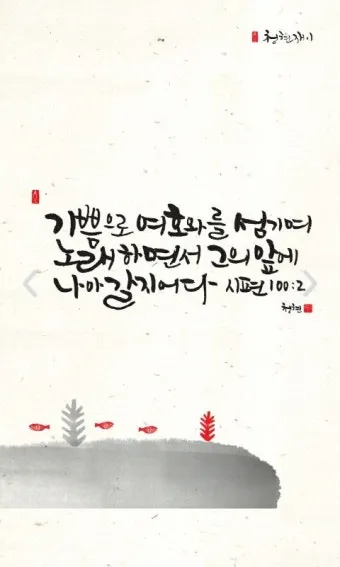 청현재이
기쁨으로 여호와를 섬기며
노래하면서 그의 앞에
나아갈지어다 - 시편 100:2
청현